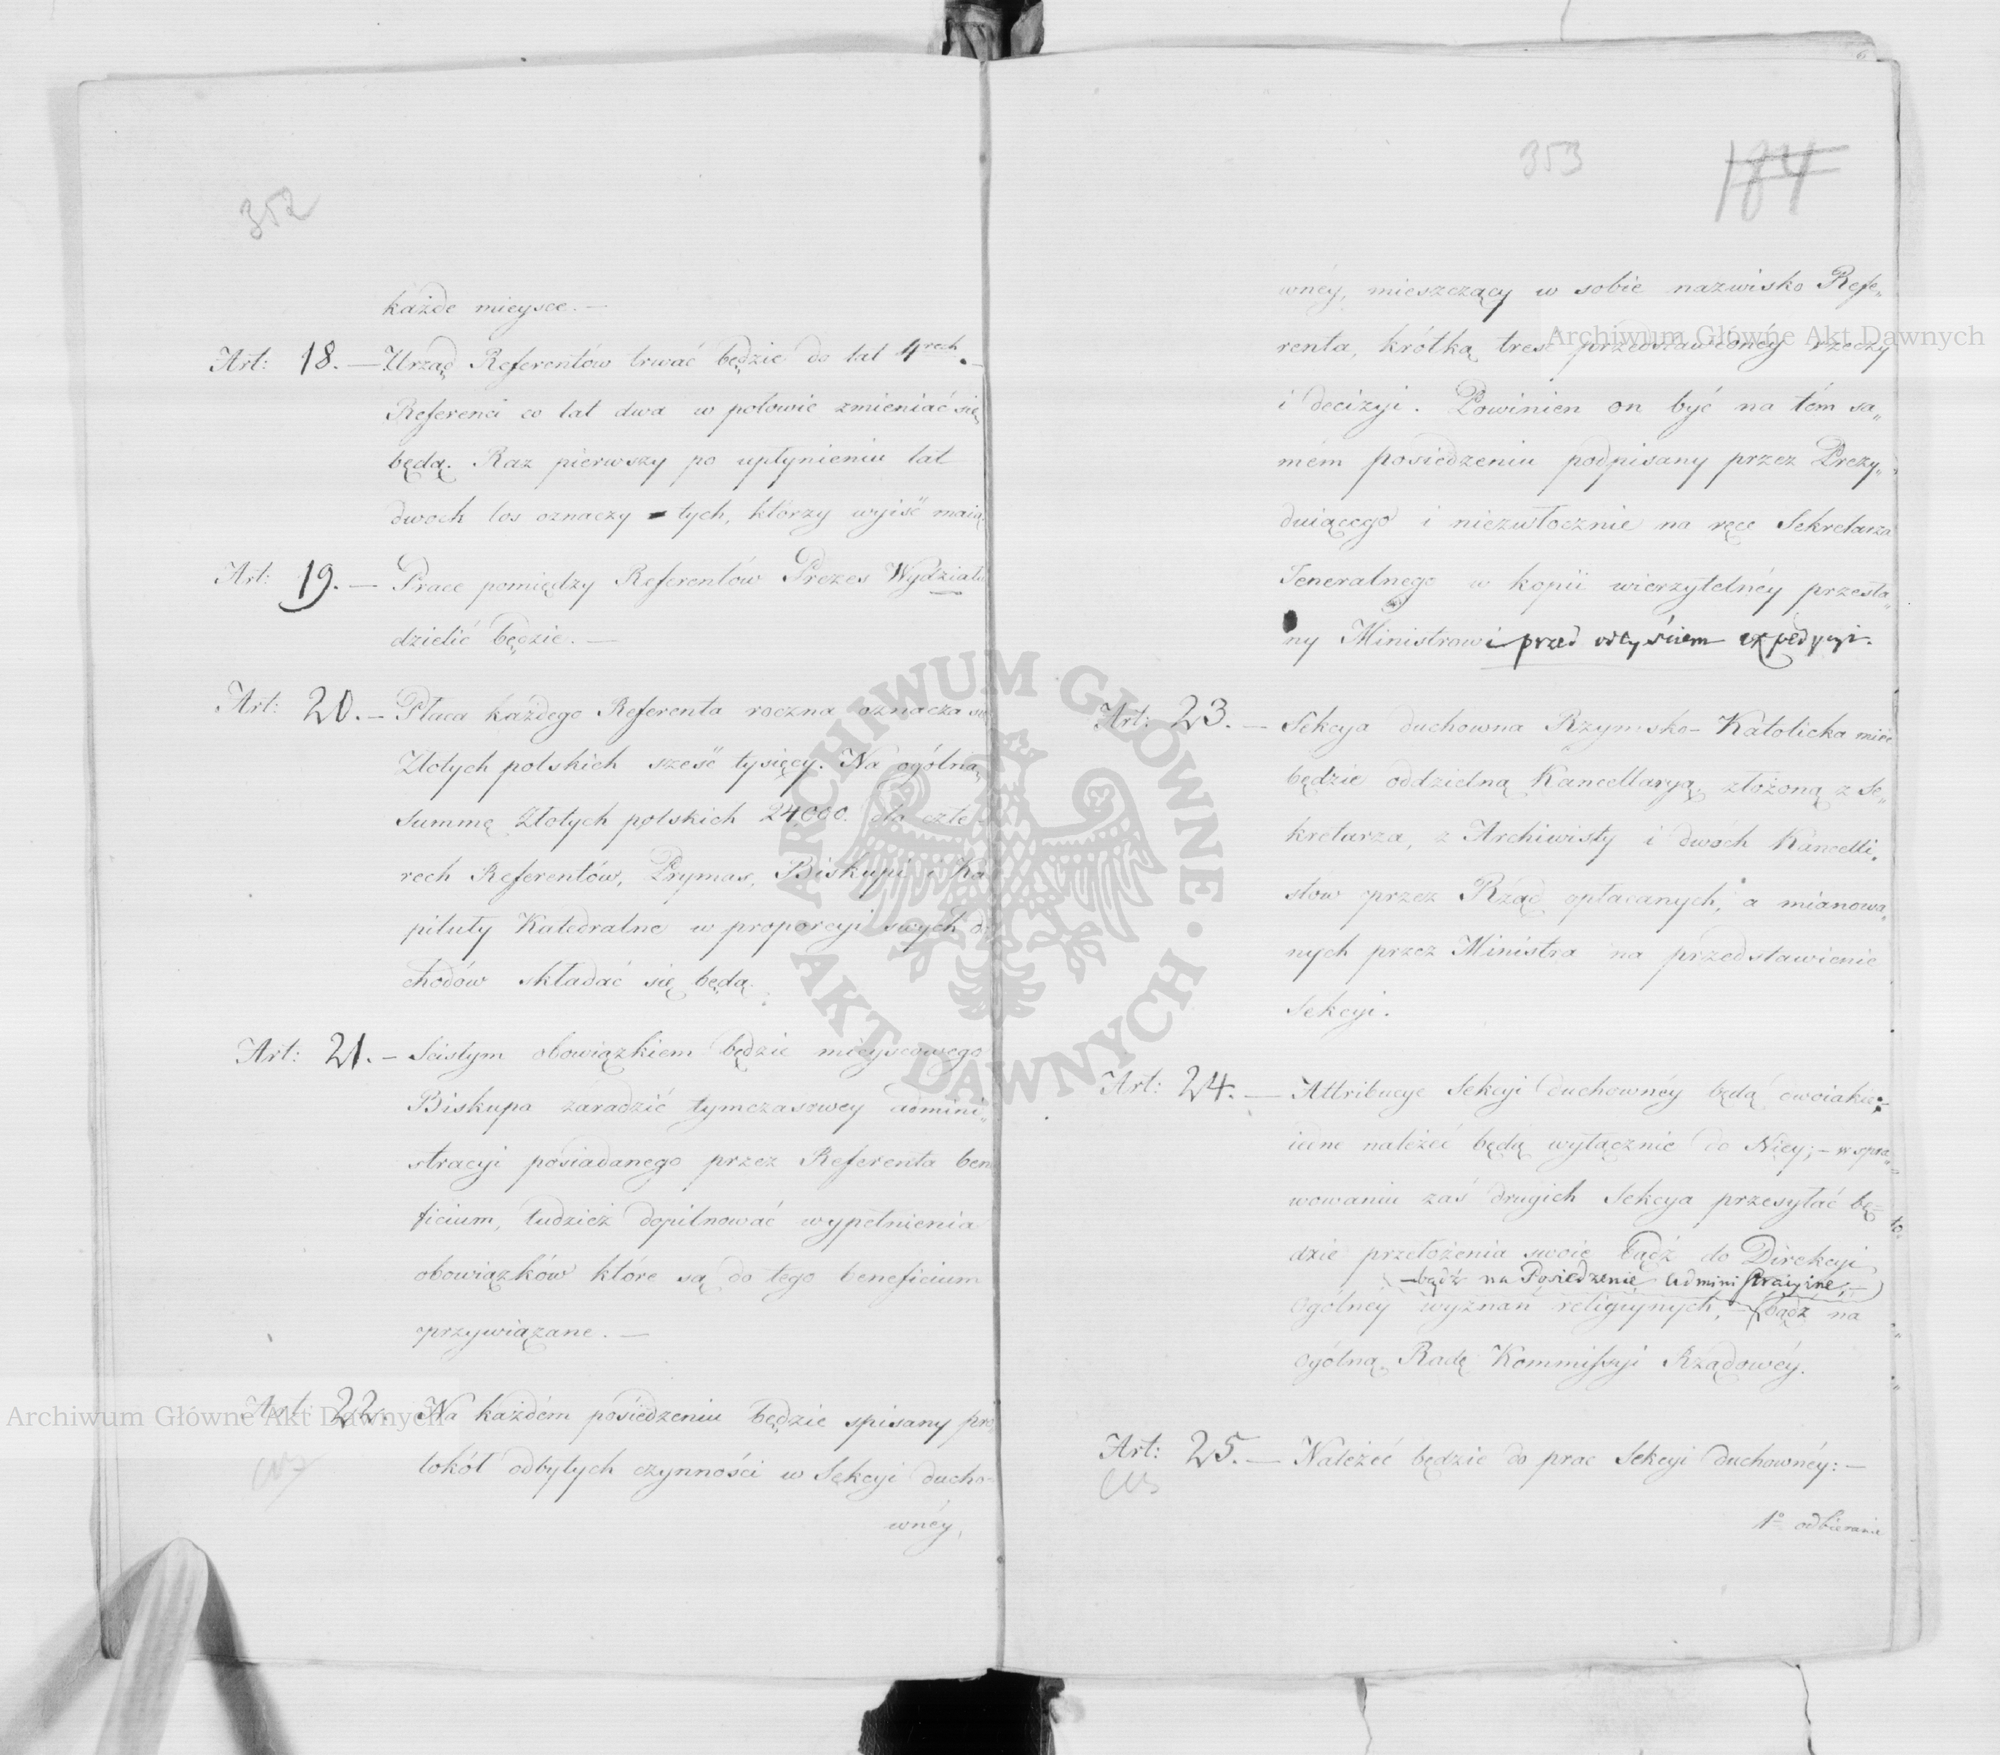 352
każde mieysce. —
Art: 18. — Urząd Referentów trwać będzie do lat 4rech. —
Referenci co lat dwa w połowie zmieniać się
będą. Raz pierwszy po upłynieniu lat
dwoch los oznaczy tych, którzy wyiść maią.
Art: 19. — Prace pomiędzy Referentów Prezes Wydziału
dzielić będzie. —
Art: 20. — Płaca każdego Referenta roczna oznacza się
Złotych polskich sześć tysięcy. Na ogólną
summę złotych polskich 24000. dla czte-
rech Referentów, Prymas, Biskupi i Ka
pituły Katedralne w proporcyi swych do
chodów składać się będą.
Art: 21. — Scisłym obowiązkiem będzie mieyscowego
Biskupa zaradzić tymczasowey admini„
stracyi posiadanego przez Referenta ben
ficium, tudzież dopilnować wypełnienia
obowiązków które są do tego beneficium
przywiązane. —
Art: 22. Na każdém posiedzeniu będzie spisany pro
tokół odbytych czynności w Sekcyi ducho-
wnéy,
6
353
184
wnéy, mieszczący w sobie nazwisko Refe„
renta, krótką treść przedstawionéy rzeczy
i decizyi. Powinien on być na tém sa„
mém posiedzeniu podpisany przez Prezy„
duiącego i niezwłocznie na ręce Sekretarza
Jeneralnego w kopii wierzytelnéy przesła„
ny Ministrowi przed odeyściem expedycyi.
Art: 23. — Sekcya duchowna Rzymsko-Katolicka mieć
będzie oddzielną Kancellaryą, złożoną z Se„
kretarza, z Archiwisty i dwóch Kancelli„
stow przez Rząd opłacanych, a mianowa„
nych przez Ministra na przedstawienie
Sekcyi.
Art: 24. — Attribucye Sekcyi duchownéy będą dwoiakie: —
iedne należeć będą wyłącznie do Niey; — w spra„
wowaniu zaś drugich Sekcya przesyłać bę„
dzie przełożenia swoie bądź do Direkcyi
— bądź na Posiedzenie Administracyine, —
ogólney wyznań religiynych, — bądź na
ogólną Radę Kommissyi Rządowéy.
Art: 25. — Należéć będzie do prac Sekcyi duchownéy: —
1° odbieranie
Archiwum Główne Akt Dawnych
Archiwum Główne Akt Dawnych
ARCHIWUM GŁÓWNE · AKT DAWNYCH ·